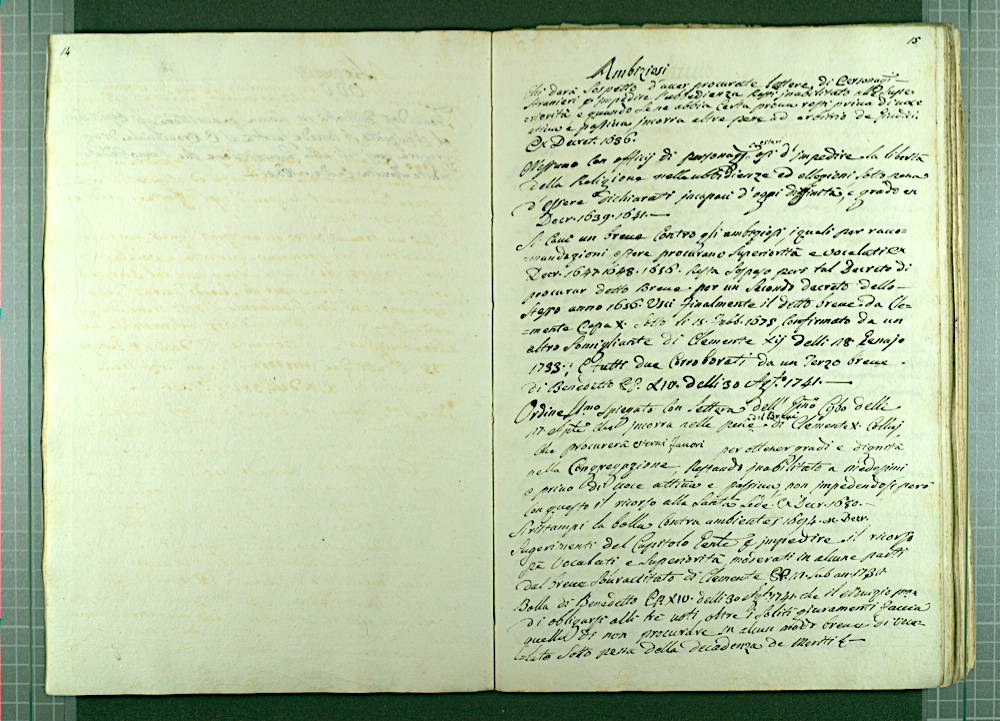 14
15
Ambiziosi
Chi darà sospetto d'aver procurate lettere di Personaggi
stranieri p impedire l'ubbidienza resti inabilitato alle Supe-
riorità e quando se ne abbia certa prova resti privo di voce
attiva e passiva incorra altre pene ad arbitrio de Giudici.
Ex Decret. 1636.
Nessuno con officij di personaggi esteri osi d'impedire la libertà
della Religione nelle ubbidienze ed ellezioni sotto pena
d'essere dichiarati incapaci d'ogni dignità, e grado ex
Decr. 1639. 1641.
Si cavi un breve contro gli ambiziosi, i quali per racco-
mandazioni estere procurano Superiorità e Vocalati ex
Decr. 1647. 1648. 1656. resta sospeso però tal Decreto di
procurar detto Breve per un secondo decreto dello
stesso anno 1656. Uscì finalmente il detto breve da Cle-
mente Papa X. sotto li 15. Febb. 1675 confirmato da un
altro somigliante di Clemente xij delli 18 Genajo
1733; e tutti due corroborati da un terzo breve
di Benedetto P.P. XIV. delli 30 Agto 1741.
Ordine spiegato con lettera dell' Cybo delli
17 incorra nelle pene di Clemente X. Colui
che procurerà esterni favori per ottener gradi e dignità
nella Congregazione, restando inabilitato a medesimi
e privo di voce attiva e passiva, non impedendosi però
con questo il ricorso alla Santa Sede ex Decr. 1680.
Si ristampi la bolla contra ambientes 1694. ex Decr.
Sugerimenti del Capitolo Gente p impedire il ricorso
pe Vocalati e Superiorità moderati in alcune parti
dal breve souraccitato di Clemente P.P. sub an. 1733.
Bolla di Benedetto P.P. XIV. delli 30 Agto 1741. che
di obligarsi alli tre voti oltre i soliti giuramenti faccia
quello di non procurare in alcun modo breve di Voca-
lato sotto pena della decadenza de Meriti